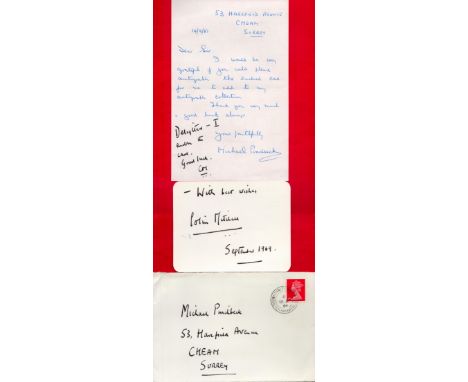 53, Harefield Avenue
CHEAM
SURREY
Dear Sir,
I would be very
grateful if you could please
autograph the enclosed card
for me to add to my
autograph collection.
Thank you very much
& good luck always
Yours faithfully,
Michael
Delighted – I
enclose
card.
Good luck.
CM
– With best wishes
Colin Mitchell
September 1969.
Michael
53, Harefield Avenue
CHEAM
SURREY